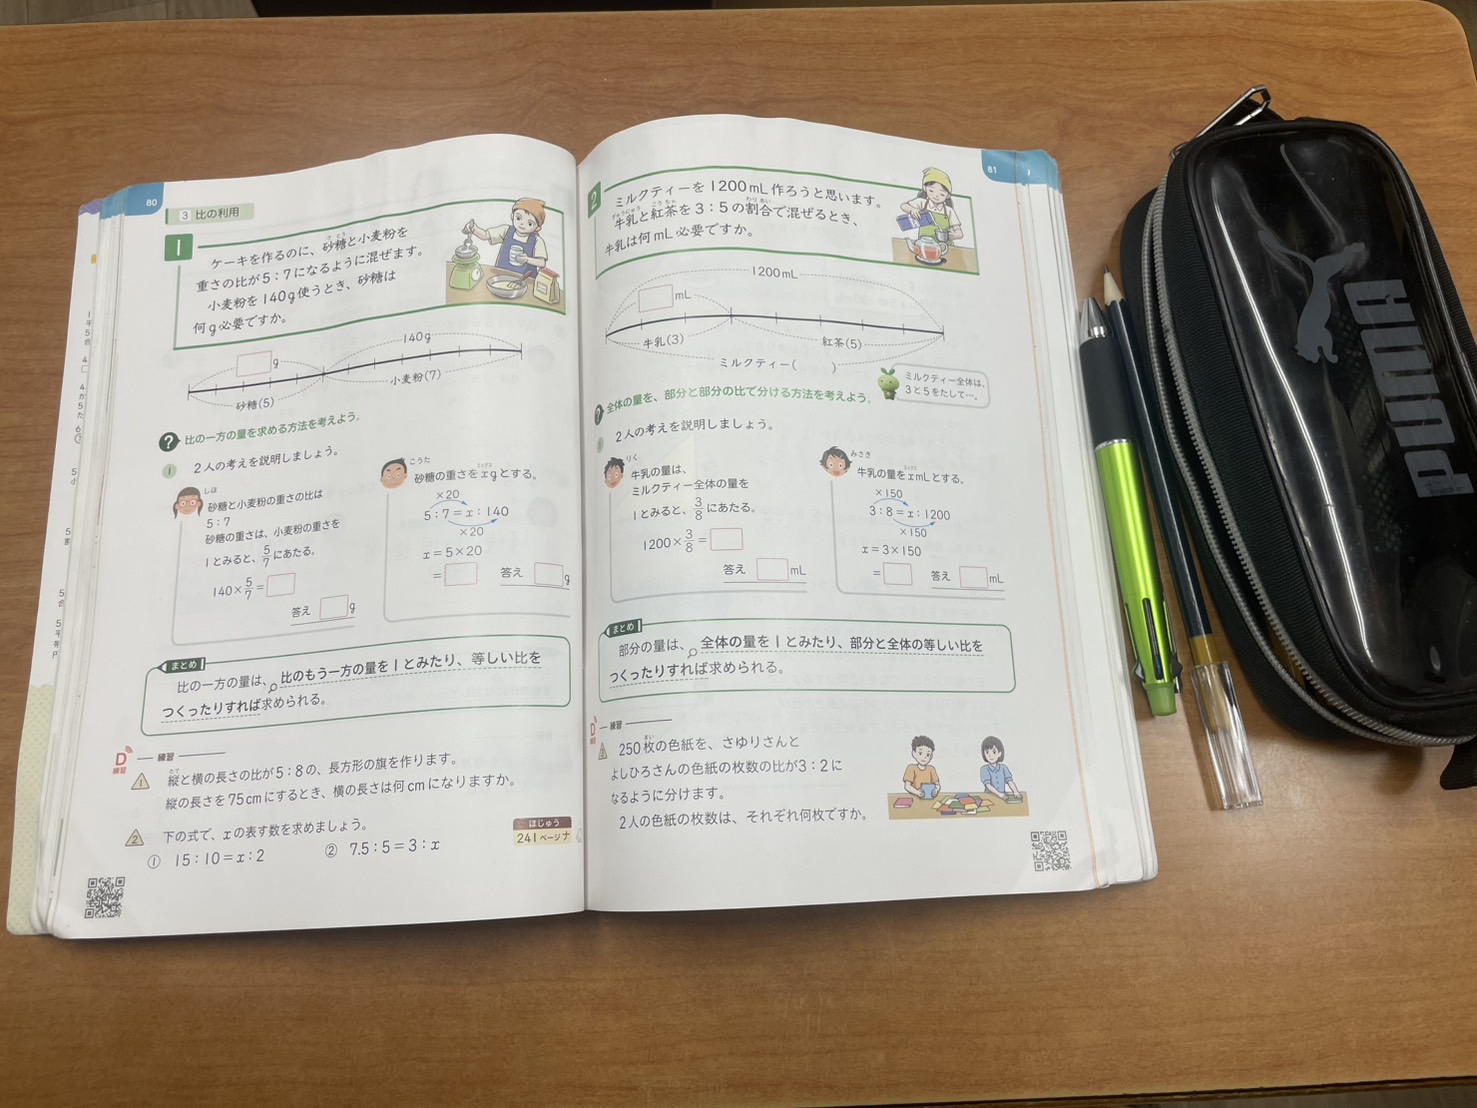 80
3 比の利用
1
ケーキを作るのに、砂糖と小麦粉を
重さの比が5:7になるように混ぜます。
小麦粉を140g使うとき、砂糖は
何g必要ですか。
140g
g
小麦粉(7)
砂糖(5)
? 比の一方の量を求める方法を考えよう。
1 2人の考えを説明しましょう。
しほ
砂糖と小麦粉の重さの比は
5:7
砂糖の重さは、小麦粉の重さを
1とみると、5/7にあたる。
140×5/7=
答え g
こうた
砂糖の重さをxgとする。
×20
5:7=x:140
×20
x=5×20
=
答え g
まとめ
比の一方の量は、比のもう一方の量を1とみたり、等しい比を
つくったりすれば求められる。
D 練習
練習
1 縦と横の長さの比が5:8の、長方形の旗を作ります。
縦の長さを75cmにするとき、横の長さは何cmになりますか。
2 下の式で、xの表す数を求めましょう。
① 15:10=x:2
② 7.5:5=3:x
ほじゅう
241ページ ナ
81
2
ミルクティーを1200mL作ろうと思います。
牛乳と紅茶を3:5の割合で混ぜるとき、
牛乳は何mL必要ですか。
1200mL
mL
牛乳(3)
紅茶(5)
ミルクティー( )
ミルクティー全体は、
3と5をたして…。
? 全体の量を、部分と部分の比で分ける方法を考えよう。
1 2人の考えを説明しましょう。
りく
牛乳の量は、
ミルクティー全体の量を
1とみると、3/8にあたる。
1200×3/8=
答え mL
みさき
牛乳の量をxmLとする。
×150
3:8=x:1200
×150
x=3×150
=
答え mL
まとめ
部分の量は、全体の量を1とみたり、部分と全体の等しい比を
つくったりすれば求められる。
D
練習
250枚の色紙を、さゆりさんと
よしひろさんの色紙の枚数の比が3:2に
なるように分けます。
2人の色紙の枚数は、それぞれ何枚ですか。
PUMA